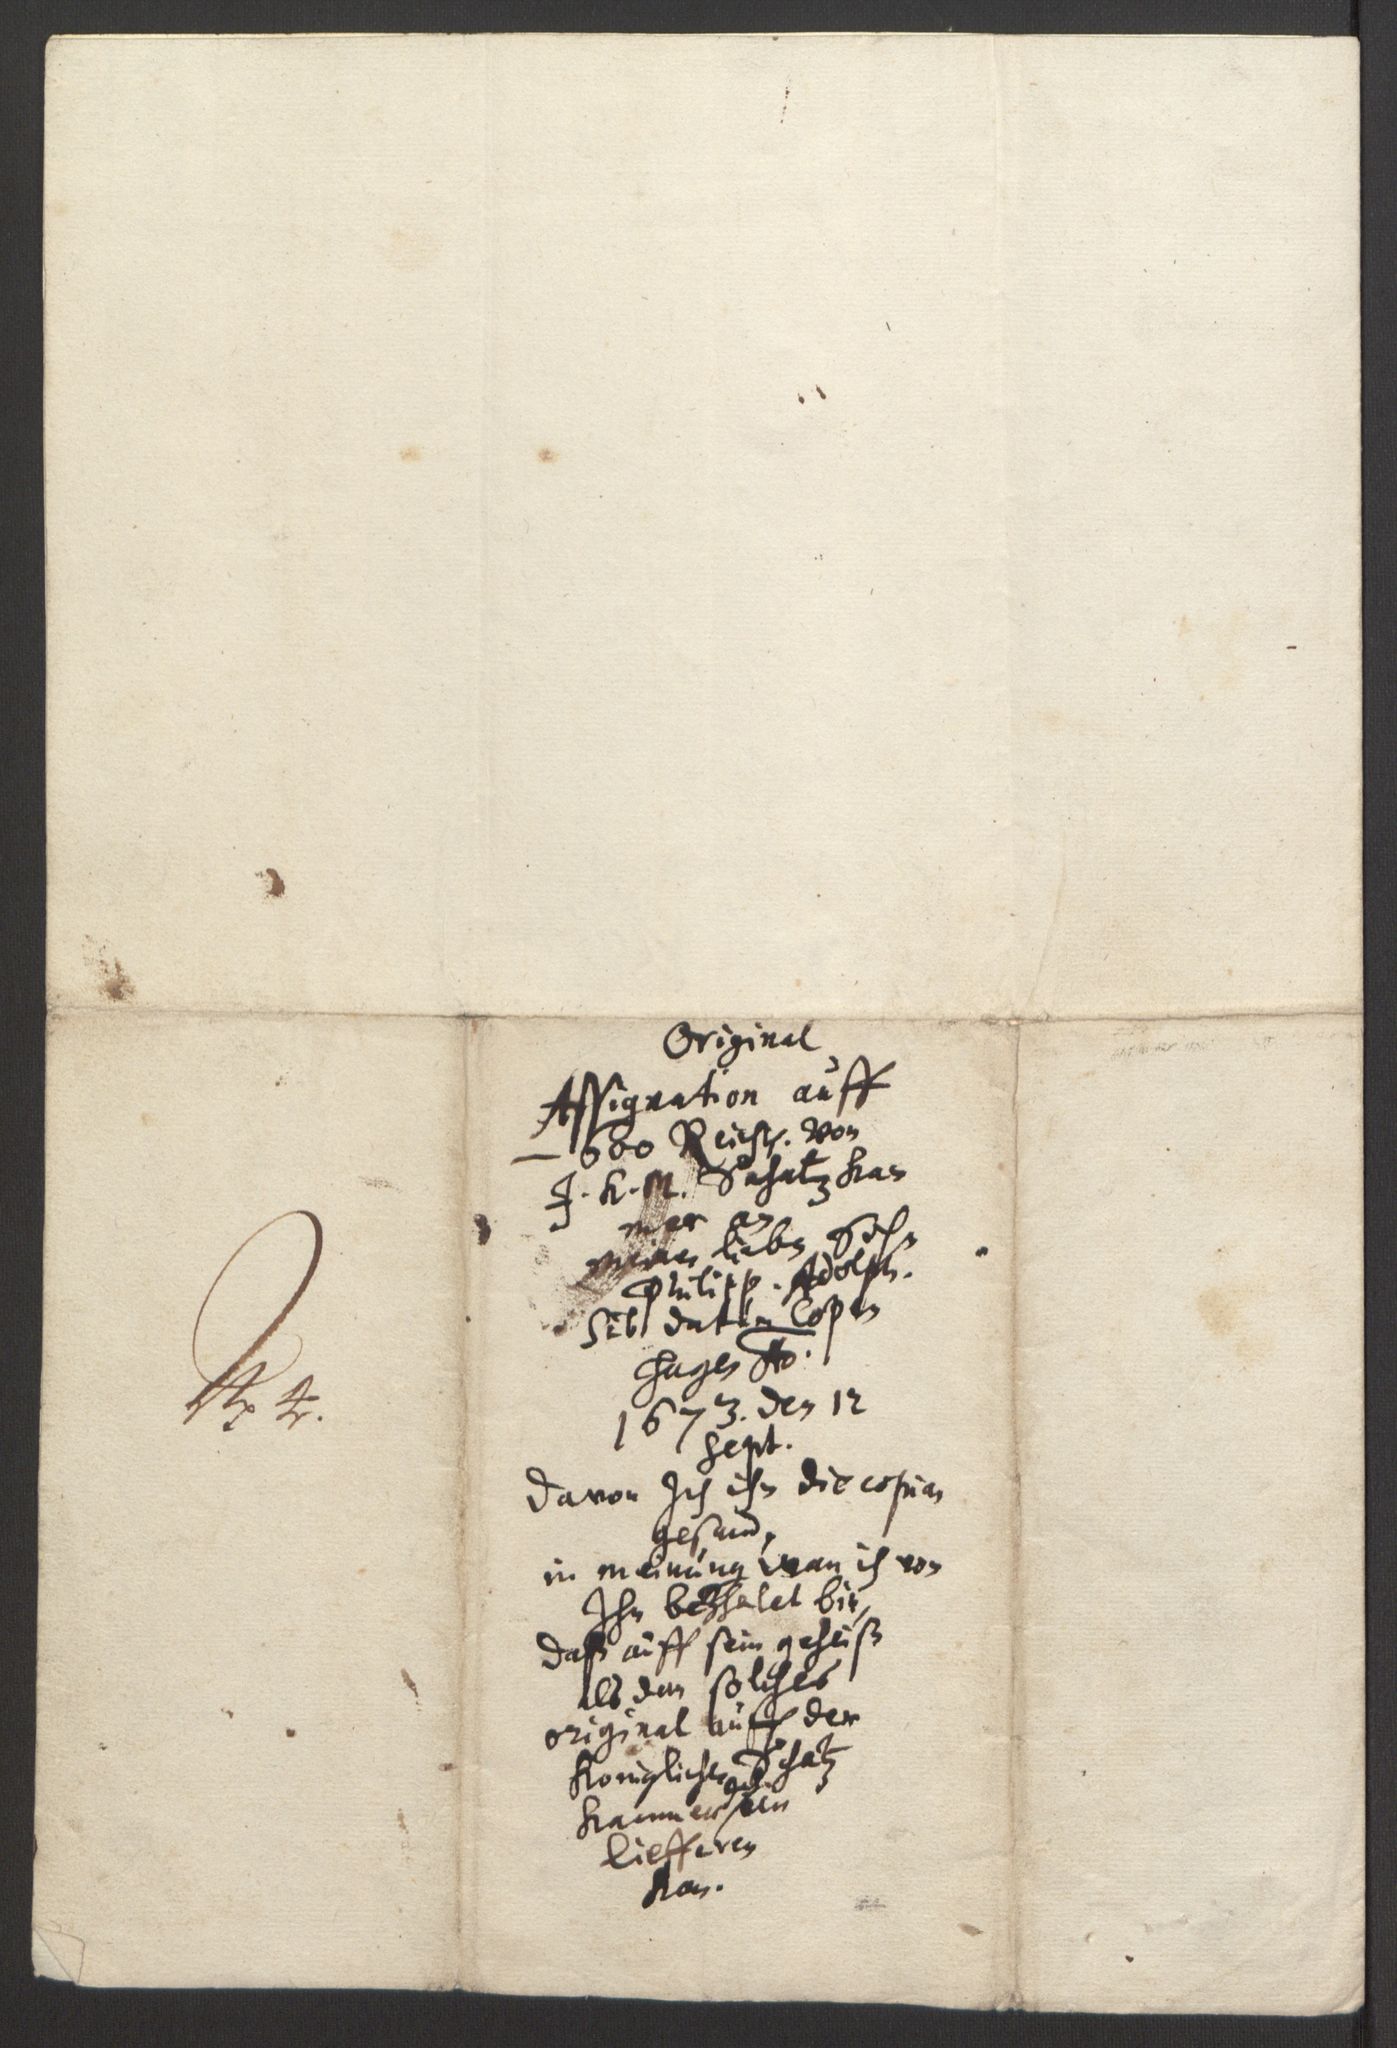 Original
Assignation auff
600 Reichs. von
J. K. M. Schatz kam
mer an
meinen lieben Sohn
Philipp. Adolph.
sub datum Copen
hagen Ao.
1673. den 12
Sept.
Davon Ich ihn die copiam
gesand,
in meinung wan ich von
Ihm bezhalet bin,
daß auff sein geheiß
als dan solches
original auff der
Königlichen Schatz
kammer ein
lieffern
kan.